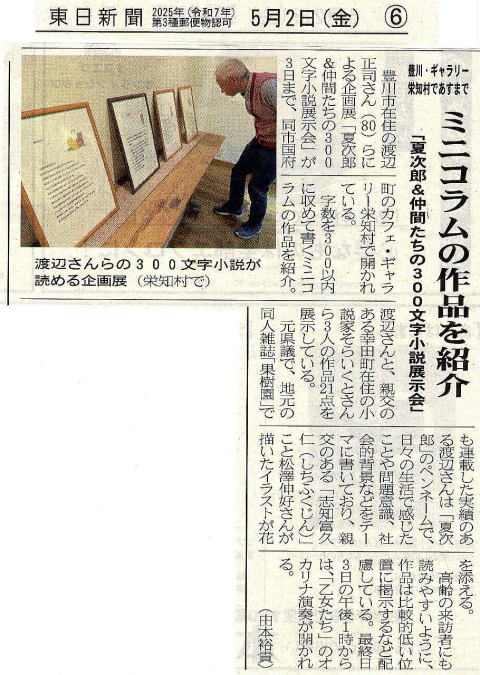 東日新聞 2025年(令和7年) 第3種郵便物認可 5月2日(金) ⑥
豊川・ギャラリー
栄知村であすまで
ミニコラムの作品を紹介
「夏次郎&仲間たちの300文字小説展示会」
豊川市在住の渡辺
正司さん(80)らに
よる企画展「夏次郎
&仲間たちの300
文字小説展示会」が
3日まで、同市国府
町のカフェ・ギャラ
リー栄知村で開かれ
ている。
字数を300以内
に収めて書くミニコ
ラムの作品を紹介。
渡辺さんと、親交の
ある幸田町在住の小
説家そらいくとさん
ら3人の作品21点を
展示している。
元県議で、地元の
同人雑誌「果樹園」で
も連載した実績のあ
る渡辺さんは「夏次
郎」のペンネームで、
日々の生活で感じた
ことや問題意識、社
会的背景などをテー
マに書いており、親
交のある「志知富久
仁(しちふくじん)」
こと松澤伸好さんが
描いたイラストが花
を添える。
高齢の来訪者にも
読みやすいように、
作品は比較的低い位
置に掲示するなど配
慮している。最終日
3日の午後1時から
は、「乙女たち」のオ
カリナ演奏が開かれ
る。
(由本裕貴)
渡辺さんらの300文字小説が
読める企画展(栄知村で)